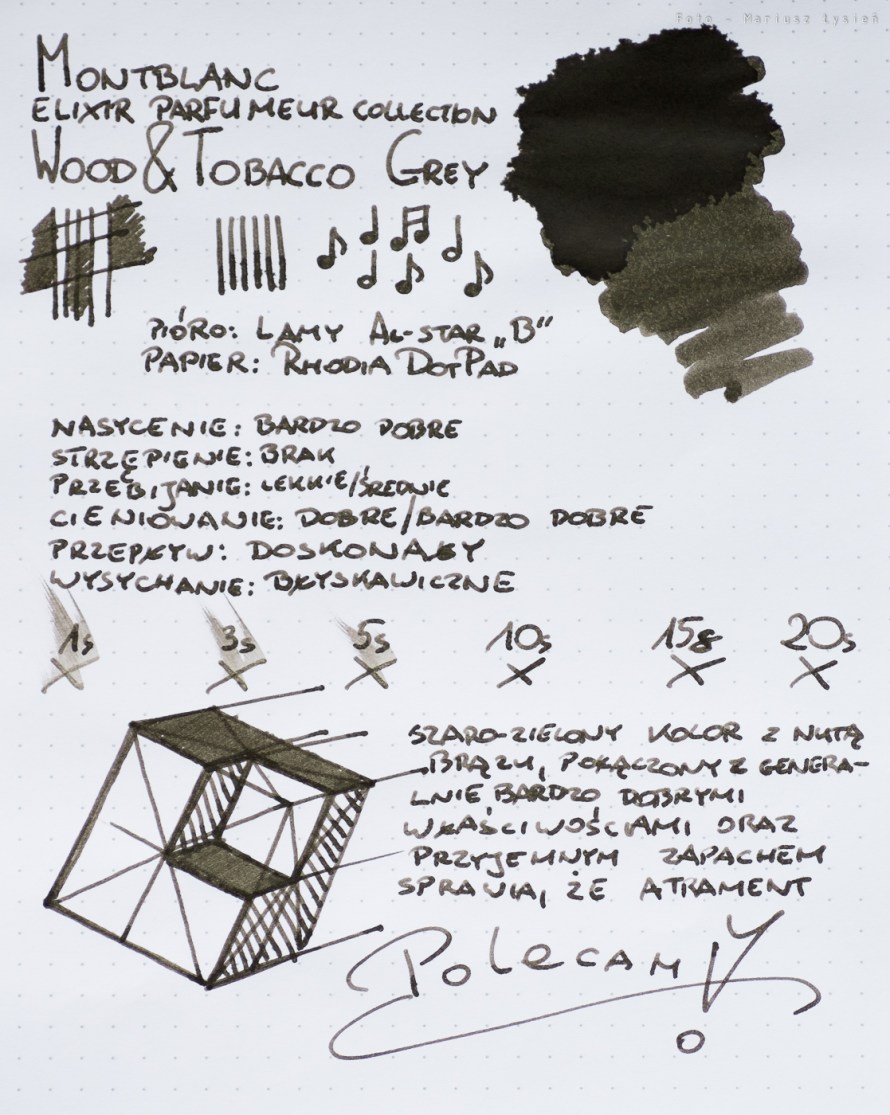 Foto - Mariusz Łysień
MONTBLANC
ELIXIR PARFUMEUR COLLECTION
WOOD & TOBACCO GREY
PIÓRO: LAMY AL-STAR „B”
PAPIER: RHODIA DOTPAD
NASYCENIE: BARDZO DOBRE
STRZĘPIENIE: BRAK
PRZEBIJANIE: LEKKIE/ŚREDNIE
CIENIOWANIE: DOBRE/BARDZO DOBRE
PRZEPŁYW: DOSKONAŁY
WYSYCHANIE: BŁYSKAWICZNE
1s 3s 5s 10s 15s 20s
SZARO-ZIELONY KOLOR Z NUTĄ
BRĄZU, POŁĄCZONY Z GENERA-
LNIE BARDZO DOBRYMI
WŁAŚCIWOŚCIAMI ORAZ
PRZYJEMNYM ZAPACHEM
SPRAWIA, ŻE ATRAMENT
POLECAM!